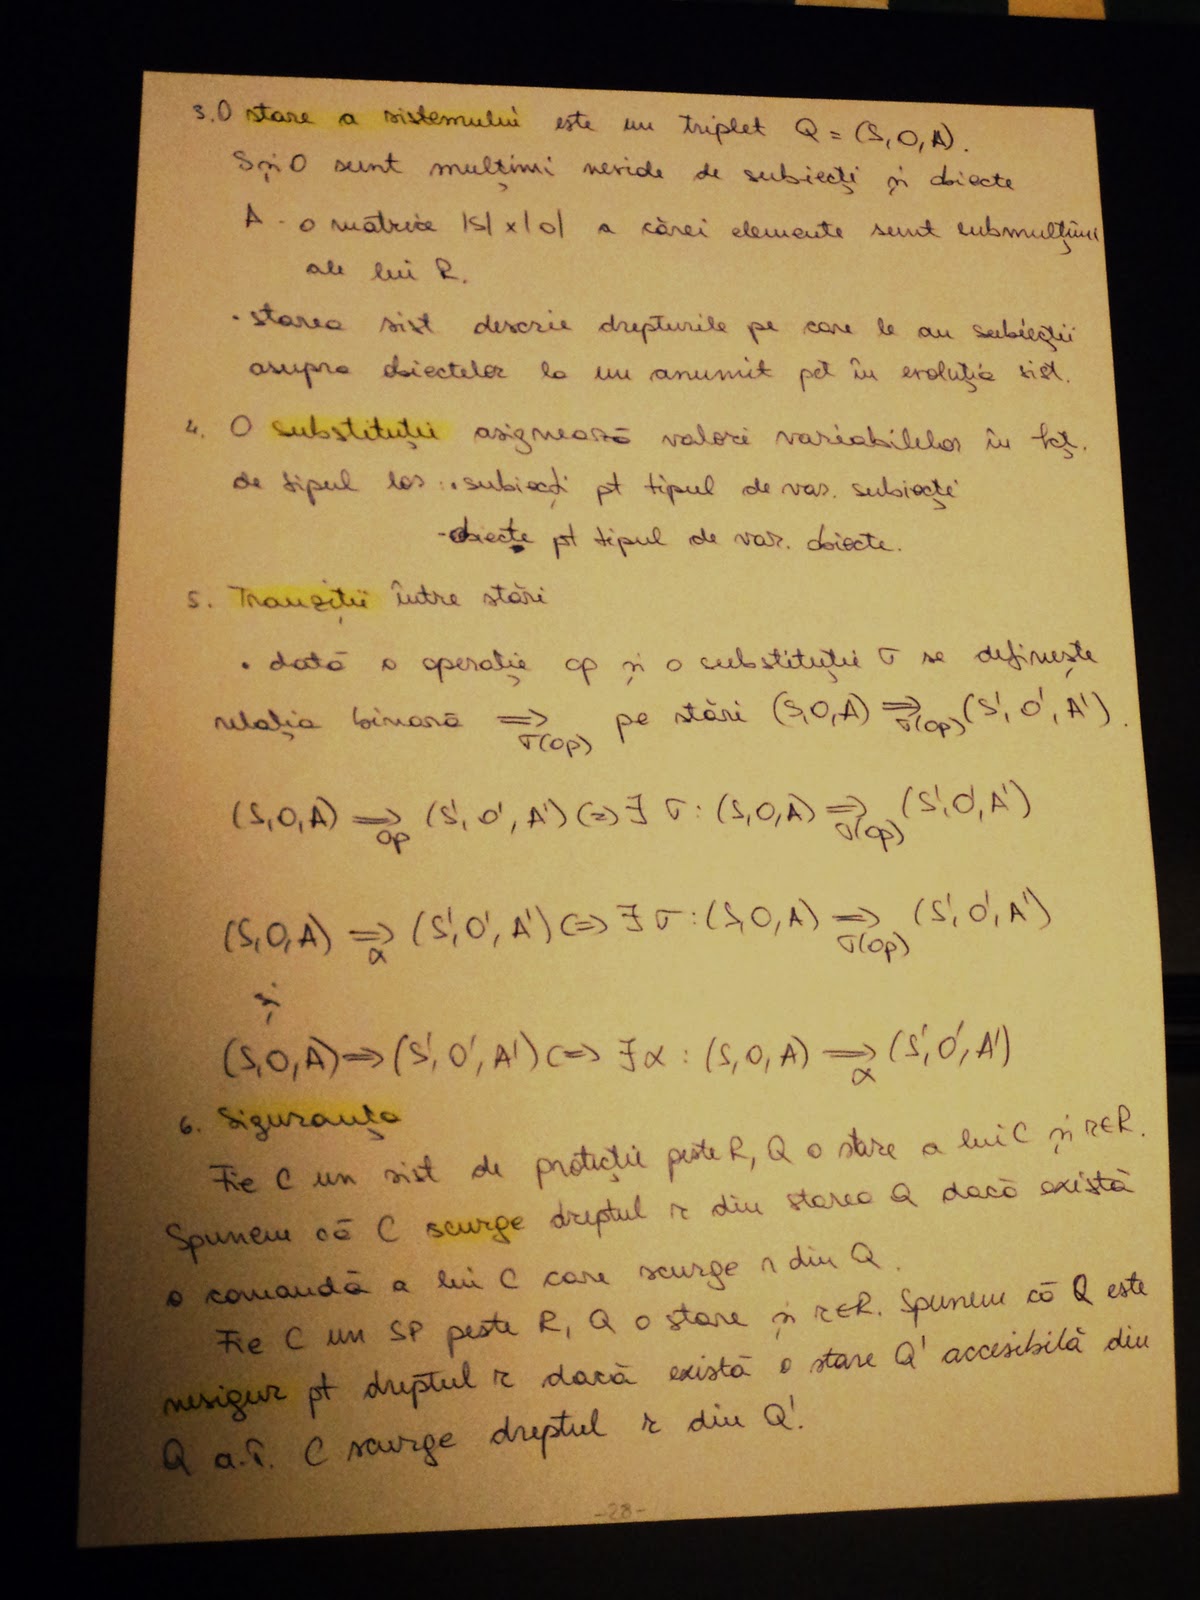 3. O stare a sistemului este un triplet Q = (S, O, A).
S și O sunt mulțimi nevide de subiecți și obiecte
A - o matrice |S| x |O| a cărei elemente sunt submulțimi
ale lui R.
• starea sist descrie drepturile pe care le au subiecții
asupra obiectelor la un anumit pct în evoluția sist.
4. O substituții asignează valori variabilelor în fcț.
de tipul lor: • subiecți pt tipul de var. subiecte
- obiecte pt tipul de var. obiecte.
5. Tranziții între stări
• dată o operație op și o substituții σ se definește
relația binară ⇒σ(op) pe stări (S,O,A) ⇒σ(op) (S', O', A').
(S,O,A) ⇒op (S', O', A') <=> ∃ σ : (S,O,A) ⇒σ(op) (S', O', A')
(S,O,A) ⇒α (S', O', A') <=> ∃ σ : (S,O,A) ⇒σ(op) (S', O', A')
și
(S,O,A) ⇒ (S', O', A') <=> ∃ α : (S,O,A) ⇒α (S', O', A')
6. Siguranța
Fie C un sist de protecție peste R, Q o stare a lui C și r∈R.
Spunem că C scurge dreptul r din starea Q dacă există
o comandă a lui C care scurge r din Q.
Fie C un SP peste R, Q o stare și r∈R. Spunem că Q este
nesigur pt dreptul r dacă există o stare Q' accesibilă din
Q a.î. C scurge dreptul r din Q'.
-28-